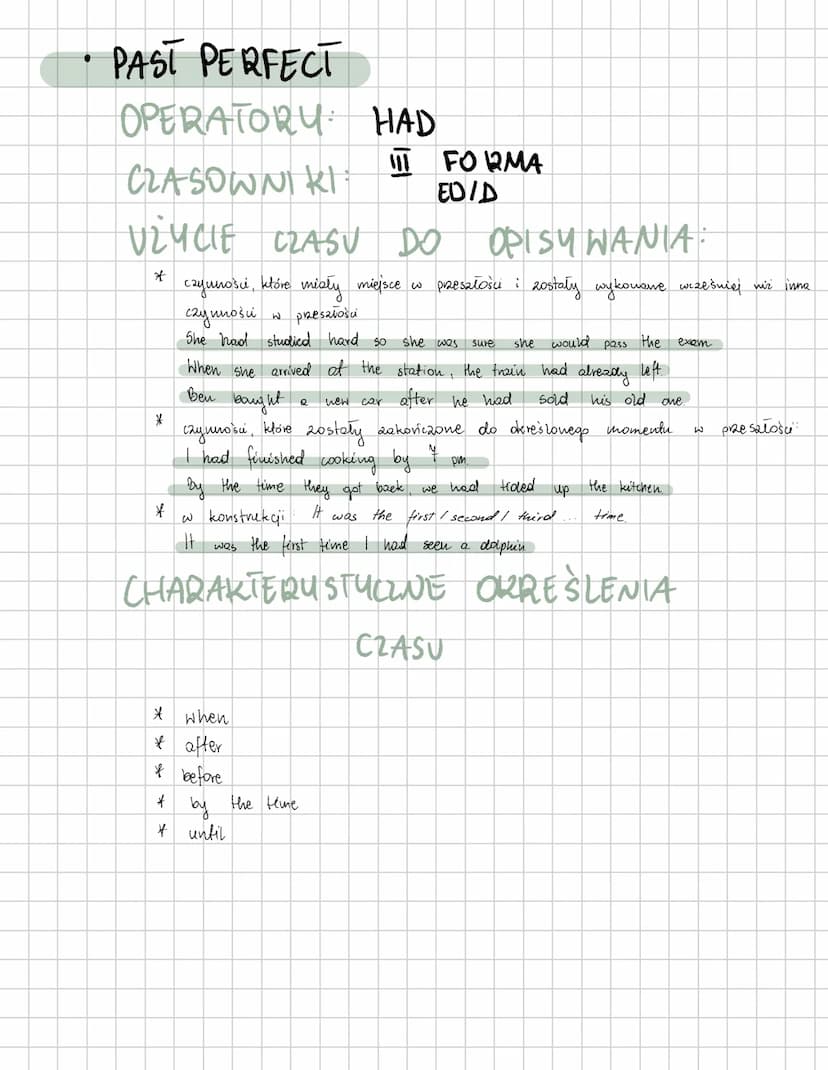 • PAST PERFECT
OPERATORY: HAD
CZASOWNIKI: III FORMA
ED/D
UŻYCIE CZASU DO OPISYWANIA:
* czynności, które miały miejsce w przeszłości i zostały wykonane wcześniej niż inne
czynności w przeszłości
She had studied hard so she was sure she would pass the exam
When she arrived at the station, the train had already left.
Ben bought a new car after he had sold his old one
* czynności, które zostały zakończone do określonego momentu w przeszłości:
I had finished cooking by 7 pm.
By the time they got back, we had tided up the kitchen.
* w konstrukcji: It was the first / second / third ... time.
It was the first time I had seen a dolphin
CHARAKTERYSTYCZNE OKREŚLENIA
CZASU
* when
* after
* before
* by the time
* until